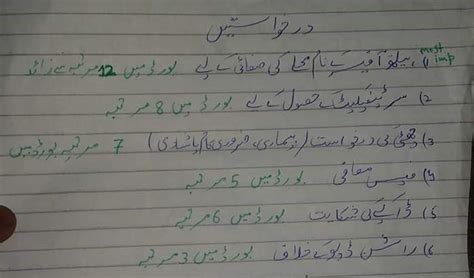 درخواستیں
most imp
1) ہیلتھ آفیسر کے نام محلہ کی صفائی کے لیے بورڈ میں 12 مرتبہ سے زائد
2) سرٹیفیکیٹ کے حصول کے لیے بورڈ میں 8 مرتبہ
3) چھٹی کی درخواست (بیماری، ضروری کام یا شادی) 7 مرتبہ بورڈ میں
4) فیس معافی بورڈ میں 5 مرتبہ
5) ڈاکیے کی شکایت بورڈ میں 6 مرتبہ
6) راشن ڈپو کے خلاف بورڈ میں 3 مرتبہ